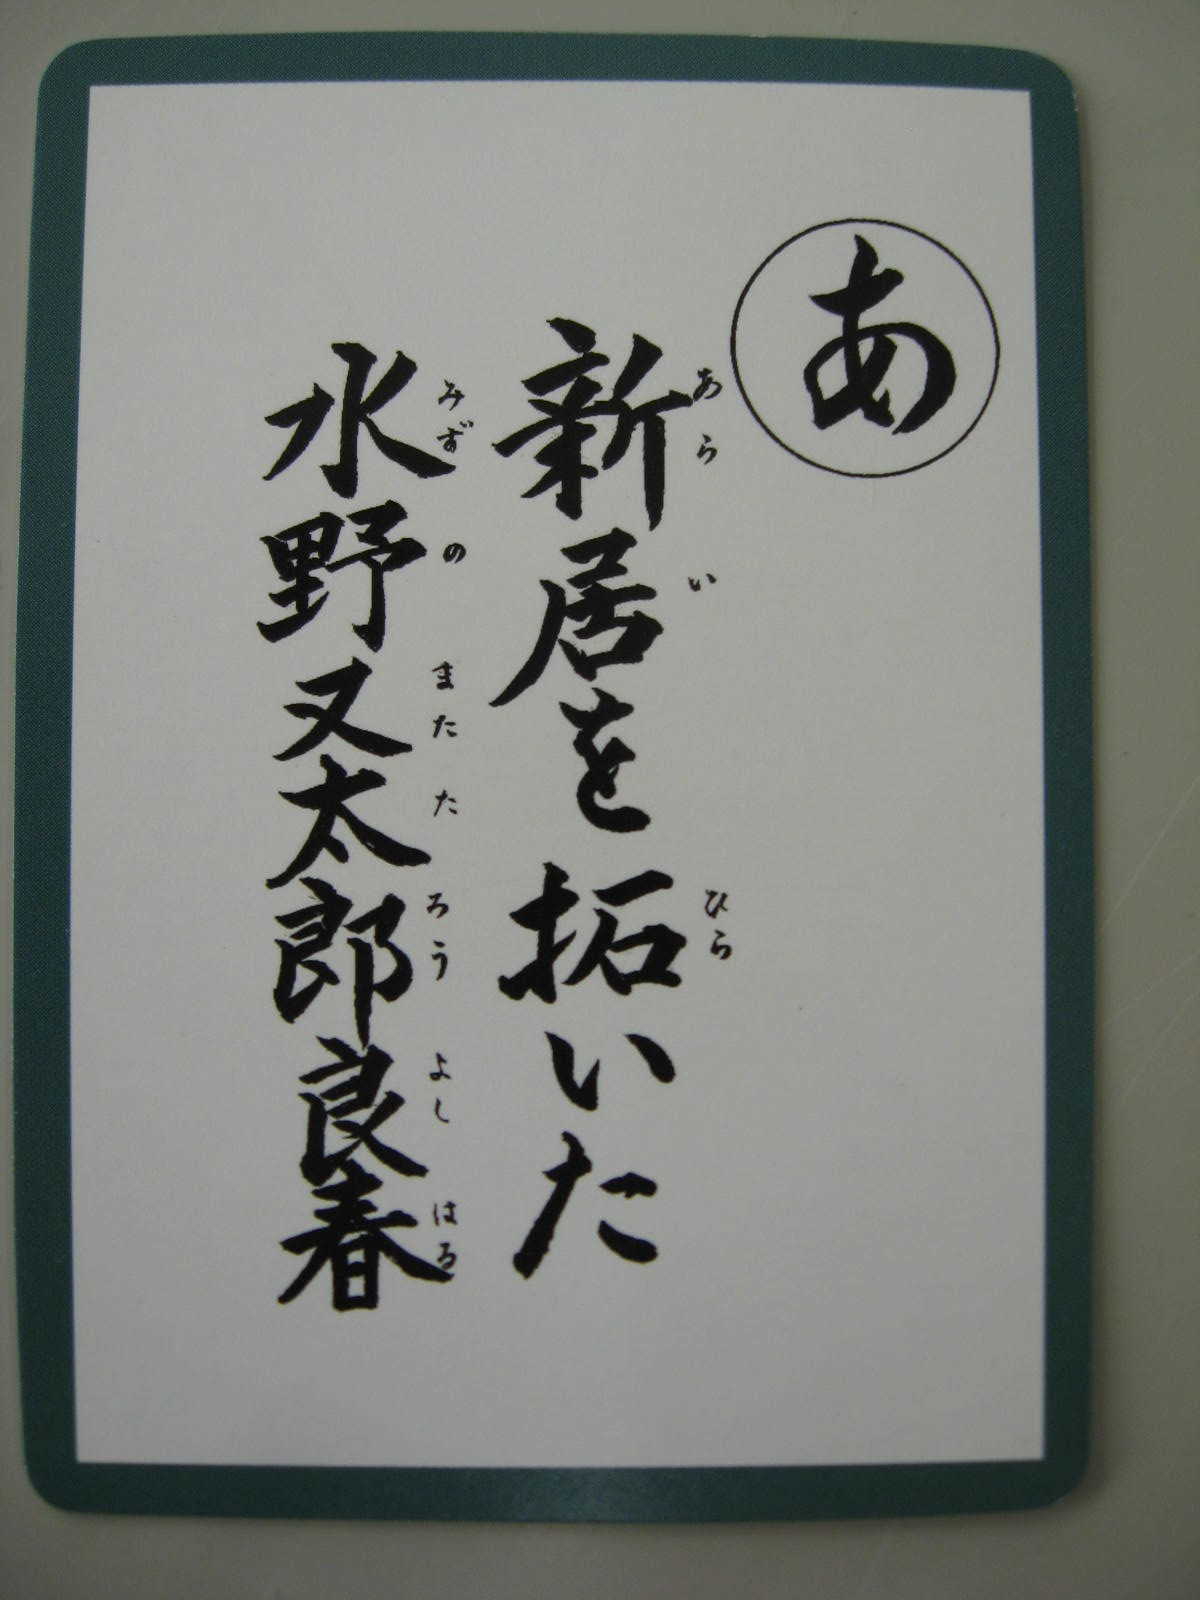 あ
新居を拓いた
あらい ひら
水野又太郎良春
みずの またたろう よしはる